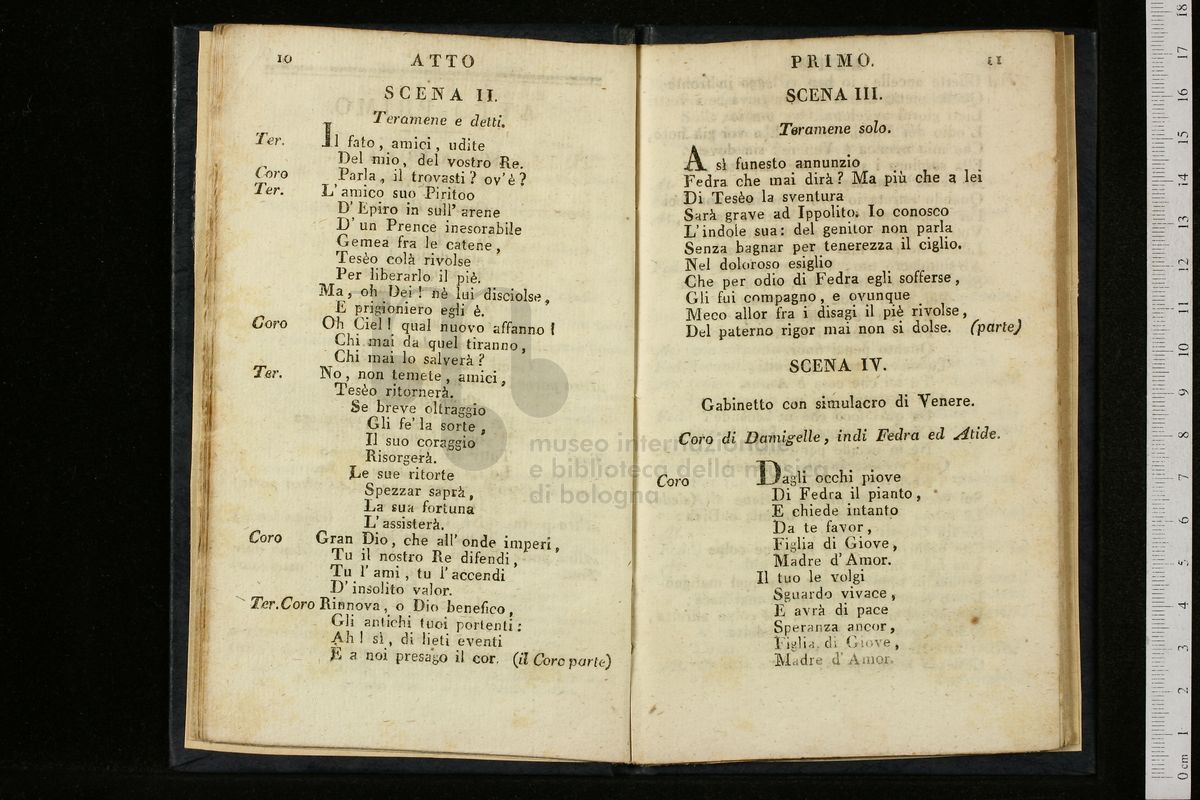 10 ATTO
SCENA II.
Teramene e detti.
Ter. Il fato, amici, udite
Del mio, del vostro Re.
Coro Parla, il trovasti? ov'è?
Ter. L'amico suo Piritoo
D'Epiro in sull'arene
D'un Prence inesorabile
Gemea fra le catene,
Tesèo colà rivolse
Per liberarlo il piè.
Ma, oh Dei! nè lui disciolse,
E prigioniero egli è.
Coro Oh Ciel! qual nuovo affanno!
Chi mai da quel tiranno,
Chi mai lo salverà?
Ter. No, non temete, amici,
Tesèo ritornerà.
Se breve oltraggio
Gli fe' la sorte,
Il suo coraggio
Risorgerà.
Le sue ritorte
Spezzar saprà,
La sua fortuna
L'assisterà.
Coro Gran Dio, che all'onde imperi,
Tu il nostro Re difendi,
Tu l'ami, tu l'accendi
D'insolito valor.
Ter. Coro Rinnova, o Dio benefico,
Gli antichi tuoi portenti:
Ah! sì, di lieti eventi
E a noi presago il cor. (il Coro parte)
PRIMO. 11
SCENA III.
Teramene solo.
A sì funesto annunzio
Fedra che mai dirà? Ma più che a lei
Di Tesèo la sventura
Sarà grave ad Ippolito. Io conosco
L'indole sua: del genitor non parla
Senza bagnar per tenerezza il ciglio.
Nel doloroso esiglio
Che per odio di Fedra egli sofferse,
Gli fui compagno, e ovunque
Meco allor fra i disagi il piè rivolse,
Del paterno rigor mai non si dolse. (parte)
SCENA IV.
Gabinetto con simulacro di Venere.
Coro di Damigelle, indi Fedra ed Atide.
Coro Dagli occhi piove
Di Fedra il pianto,
E chiede intanto
Da te favor,
Figlia di Giove,
Madre d'Amor.
Il tuo le volgi
Sguardo vivace,
E avrà di pace
Speranza ancor,
Figlia di Giove,
Madre d'Amor.
museo internazionale
e biblioteca della musica
di bologna
0 cm 1 2 3 4 5 6 7 8 9 10 11 12 13 14 15 16 17 18